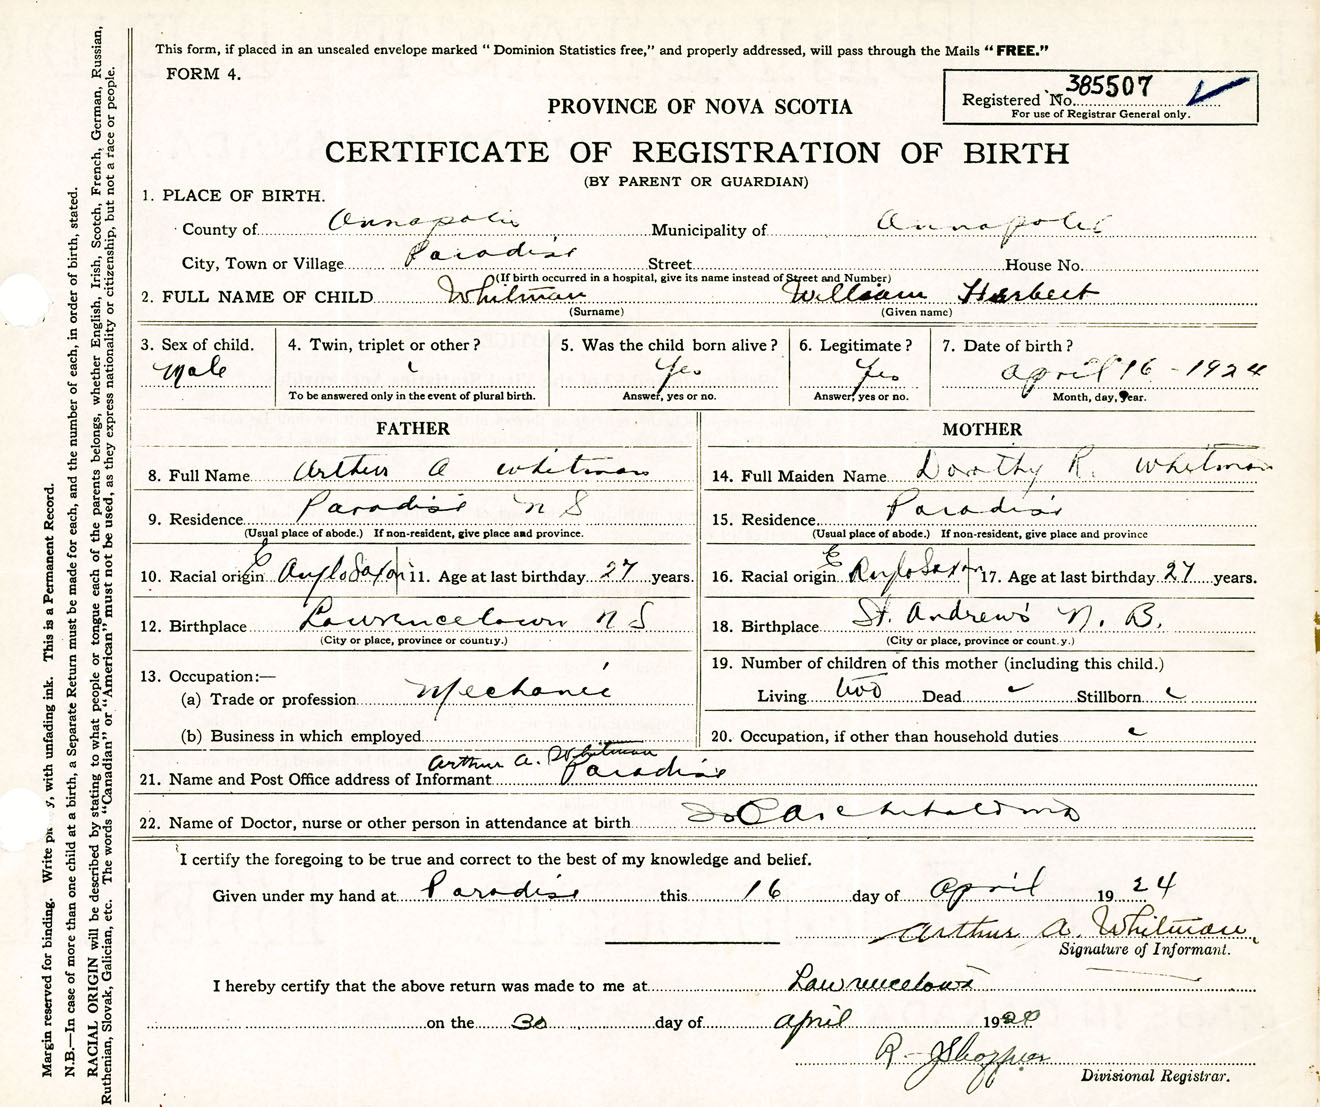 This form, if placed in an unsealed envelope marked "Dominion Statistics free," and properly addressed, will pass through the Mails "FREE."
FORM 4.
385507
Registered No.
For use of Registrar General only.
PROVINCE OF NOVA SCOTIA
CERTIFICATE OF REGISTRATION OF BIRTH
(BY PARENT OR GUARDIAN)
1. PLACE OF BIRTH.
County of Annapolis Municipality of Annapolis
City, Town or Village Paradise Street House No.
(If birth occurred in a hospital, give its name instead of Street and Number)
2. FULL NAME OF CHILD Whitman William Herbert
(Surname) (Given name)
3. Sex of child. 4. Twin, triplet or other? 5. Was the child born alive? 6. Legitimate? 7. Date of birth?
Male Yes Yes April 16 - 1924
To be answered only in the event of plural birth. Answer, yes or no. Answer, yes or no. Month, day, year.
FATHER
8. Full Name Arthur A Whitman
9. Residence Paradise N S
(Usual place of abode.) If non-resident, give place and province.
10. Racial origin E Anglo Saxon 11. Age at last birthday 27 years.
12. Birthplace Lawrencetown N S
(City or place, province or country.)
13. Occupation:—
(a) Trade or profession Mechanic
(b) Business in which employed
MOTHER
14. Full Maiden Name Dorothy R. Whitman
15. Residence Paradise
(Usual place of abode.) If non-resident, give place and province
16. Racial origin E Anglo Saxon 17. Age at last birthday 27 years.
18. Birthplace St. Andrews N. B.
(City or place, province or count.y.)
19. Number of children of this mother (including this child.)
Living two Dead Stillborn
20. Occupation, if other than household duties
Arthur A. Whitman
21. Name and Post Office address of Informant Paradise
22. Name of Doctor, nurse or other person in attendance at birth
I certify the foregoing to be true and correct to the best of my knowledge and belief.
Given under my hand at Paradise this 16 day of April 1924
Arthur A. Whitman
Signature of Informant.
I hereby certify that the above return was made to me at Lawrencetown
on the 30 day of April 19
R
Divisional Registrar.
Margin reserved for binding. Write , with unfading ink. This is a Permanent Record.
N.B.—In case of more than one child at a birth, a Separate Return must be made for each, and the number of each, in order of birth, stated.
RACIAL ORIGIN will be described by stating to what people or tongue each of the parents belongs, whether English, Irish, Scotch, French, German, Russian,
Ruthenian, Slovak, Galician, etc. The words "Canadian" or "American" must not be used, as they express nationality or citizenship, but not a race or people.